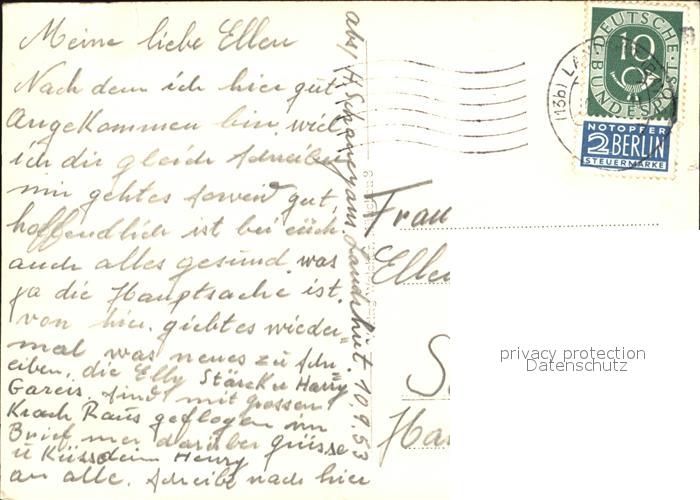 Meine liebe Ellen
Nach dem ich hier gut
angekommen bin, will
ich dir gleich schreiben
mir gehtes soweid gut,
hoffendlich ist bei euch
auch alles gesund, was
ja die Hauptsache ist.
von hier. giebtes wieder-
mal was neues zu schr-
eiben, die Elly Stärck u Harry
Gareis. sind mit grossen
Krach Raus geflogen im
Brief mer darüber grüsse
u Küsse dein Henry
an alle. Schreibe nach hier
abs, H. aus Landshut. 10.9.53
DEUTSCHE
BUNDESPOST
10
(13b) LA
NOTOPFER
2 BERLIN
STEUERMARKE
Frau
Ellen
S
Ha
privacy protection
Datenschutz